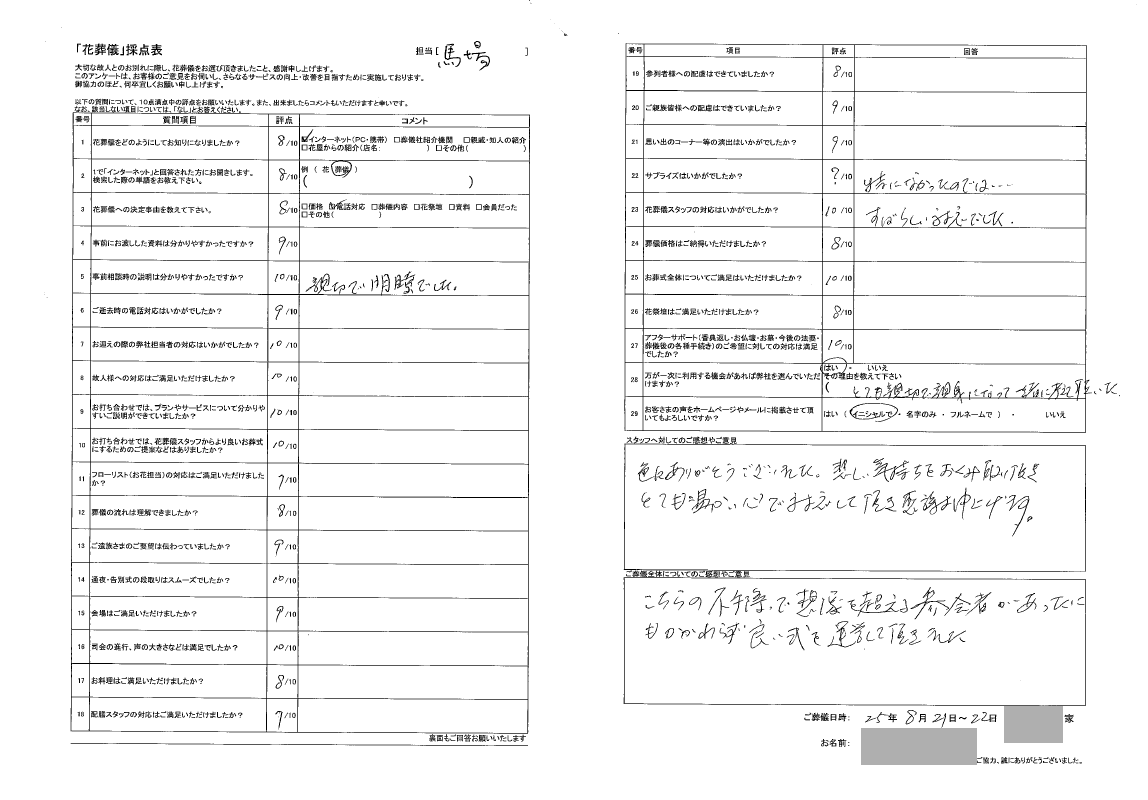 「花葬儀」採点表
担当[ 馬場 ]
大切な故人とのお別れに際し、花葬儀をお選び頂きましたこと、感謝申し上げます。
このアンケートは、お客様のご意見をお伺いし、さらなるサービスの向上・改善を目指すために実施しております。
御協力のほど、何卒宜しくお願い申し上げます。
以下の質問について、10点満点中の評点をお願いいたします。また、出来ましたらコメントもいただけますと幸いです。
なお、該当しない項目については、「なし」とお答えください。
番号 質問項目 評点 コメント
1 花葬儀をどのようにしてお知りになりましたか? 8/10 ☑インターネット(PC・携帯) □葬儀社紹介機関 □親戚・知人の紹介
□花屋からの紹介(店名: ) □その他( )
2 1で「インターネット」と回答された方にお聞きします。
検索した際の単語をお教え下さい。 8/10 例 ( 花 葬儀 )
( )
3 花葬儀への決定事由を教えて下さい。 8/10 □価格 ☑電話対応 □葬儀内容 □花祭壇 □資料 □会員だった
□その他( )
4 事前にお渡しした資料は分かりやすかったですか? 9/10
5 事前相談時の説明は分かりやすかったですか? 10/10 親切で明瞭でした。
6 ご逝去時の電話対応はいかがでしたか? 9/10
7 お迎えの際の弊社担当者の対応はいかがでしたか? 10/10
8 故人様への対応はご満足いただけましたか? 10/10
9 お打ち合わせでは、プランやサービスについて分かりや
すいご説明ができていましたか? 10/10
10 お打ち合わせでは、花葬儀スタッフからより良いお葬式
にするためのご提案などはありましたか? 10/10
11 フローリスト(お花担当)の対応はご満足いただけました
か? 7/10
12 葬儀の流れは理解できましたか? 8/10
13 ご遺族さまのご要望は伝わっていましたか? 9/10
14 通夜・告別式の段取りはスムーズでしたか? 10/10
15 会場はご満足いただけましたか? 9/10
16 司会の進行、声の大きさなどは満足でしたか? 10/10
17 お料理はご満足いただけましたか? 8/10
18 配膳スタッフの対応はご満足いただけましたか? 7/10
裏面もご回答お願いいたします
番号 項目 評点 回答
19 参列者様への配慮はできていましたか? 8/10
20 ご親族皆様への配慮はできていましたか? 9/10
21 思い出のコーナー等の演出はいかがでしたか? 9/10
22 サプライズはいかがでしたか? ?/10 特になかったのでは…
23 花葬儀スタッフの対応はいかがでしたか? 10/10 すばらしい対応でした。
24 葬儀価格はご納得いただけましたか? 8/10
25 お葬式全体についてご満足はいただけましたか? 10/10
26 花祭壇はご満足いただけましたか? 8/10
27 アフターサポート(香典返し・お仏壇・お墓・今後の法要・
葬儀後の各種手続き)のご希望に対しての対応は満足
でしたか? 10/10
28 万が一次に利用する機会があれば弊社を選んでいただ
けますか? はい ・ いいえ
その理由を教えて下さい
( とても親切で親身になって一緒に考えて頂いた
29 お客さまの声をホームページやメールに掲載させて頂
いてもよろしいですか? はい ( イニシャルで ・ 名字のみ ・ フルネームで ) ・ いいえ
スタッフへ対してのご感想やご意見
色々ありがとうございました。悲しい気持ちをおくみ取り頂き
とても温かい心で対応して頂き感謝申し上げます。
ご葬儀全体についてのご感想やご意見
こちらの不手際で想像を超える参会者があったに
もかかわらず良い式を運営して頂きました
ご葬儀日時: 25年 8月 21日~22日 家
お名前:
ご協力、誠にありがとうございました。